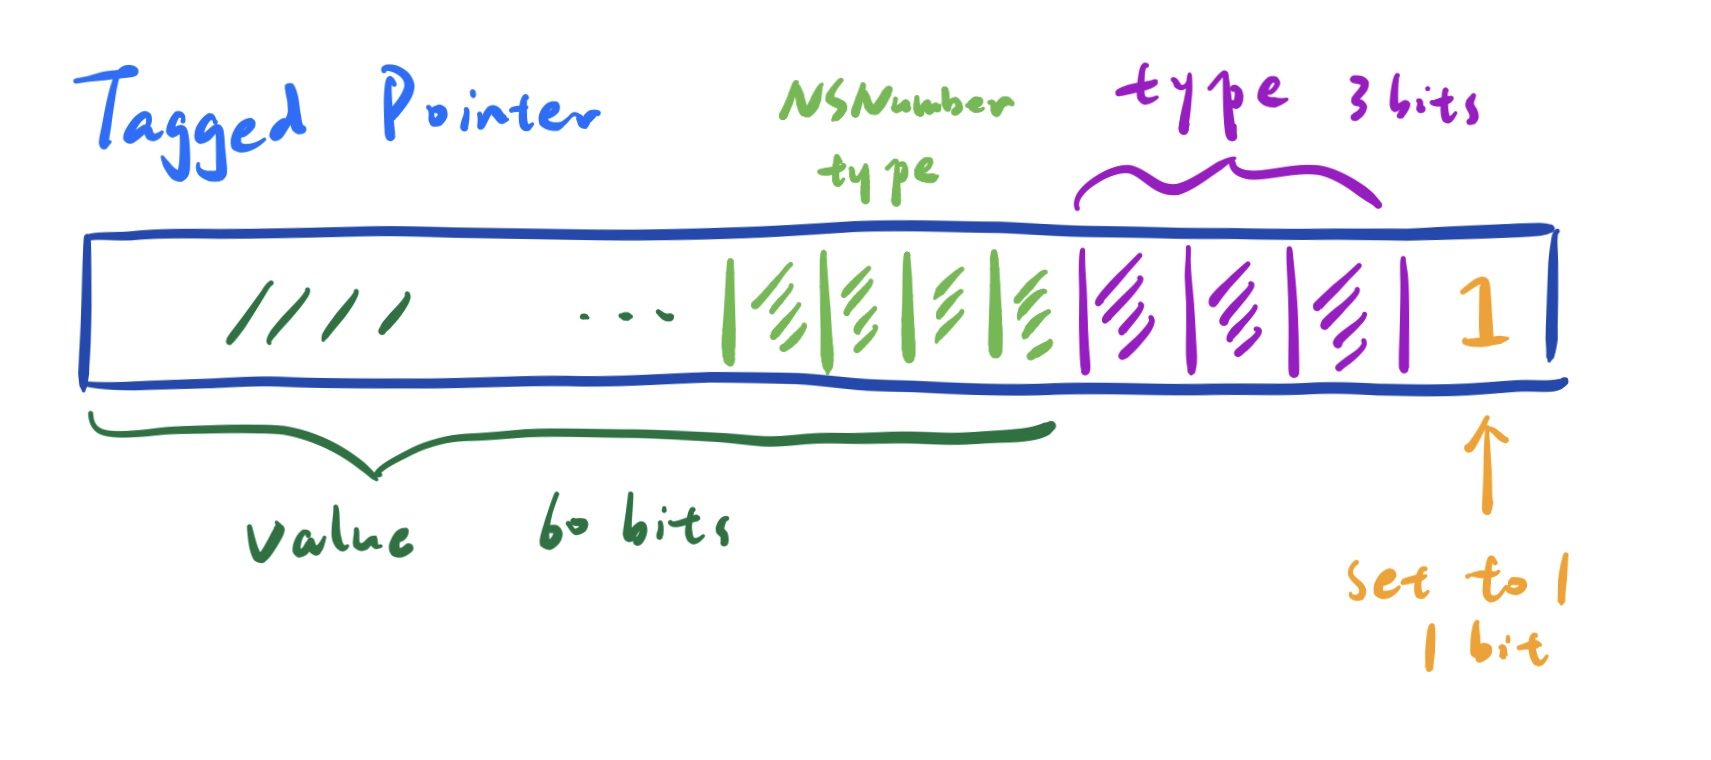 Tagged Pointer
NSNumber
type
type 3 bits
1
value 60 bits
set to 1
1 bit